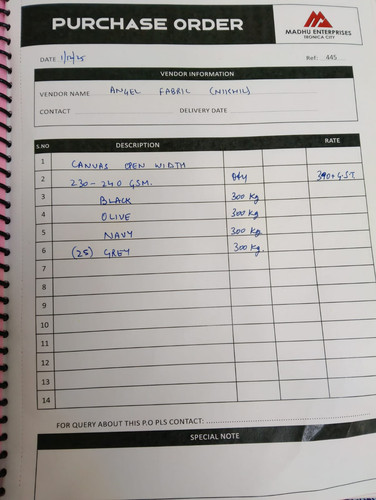 PURCHASE ORDER
MADHU ENTERPRISES
TRONICA CITY
DATE 1/12/25 Ref: 445
VENDOR INFORMATION
VENDOR NAME ANGEL FABRIC (NIKHIL)
CONTACT DELIVERY DATE
S.NO DESCRIPTION RATE
1 CANVAS OPEN WIDTH
2 230-240 GSM. Qty 390+G.ST
3 BLACK 300 Kg
4 OLIVE 300 Kg
5 NAVY 300 Kg
6 (25) GREY 300 Kg.
7
8
9
10
11
12
13
14
FOR QUERY ABOUT THIS P.O PLS CONTACT:
SPECIAL NOTE